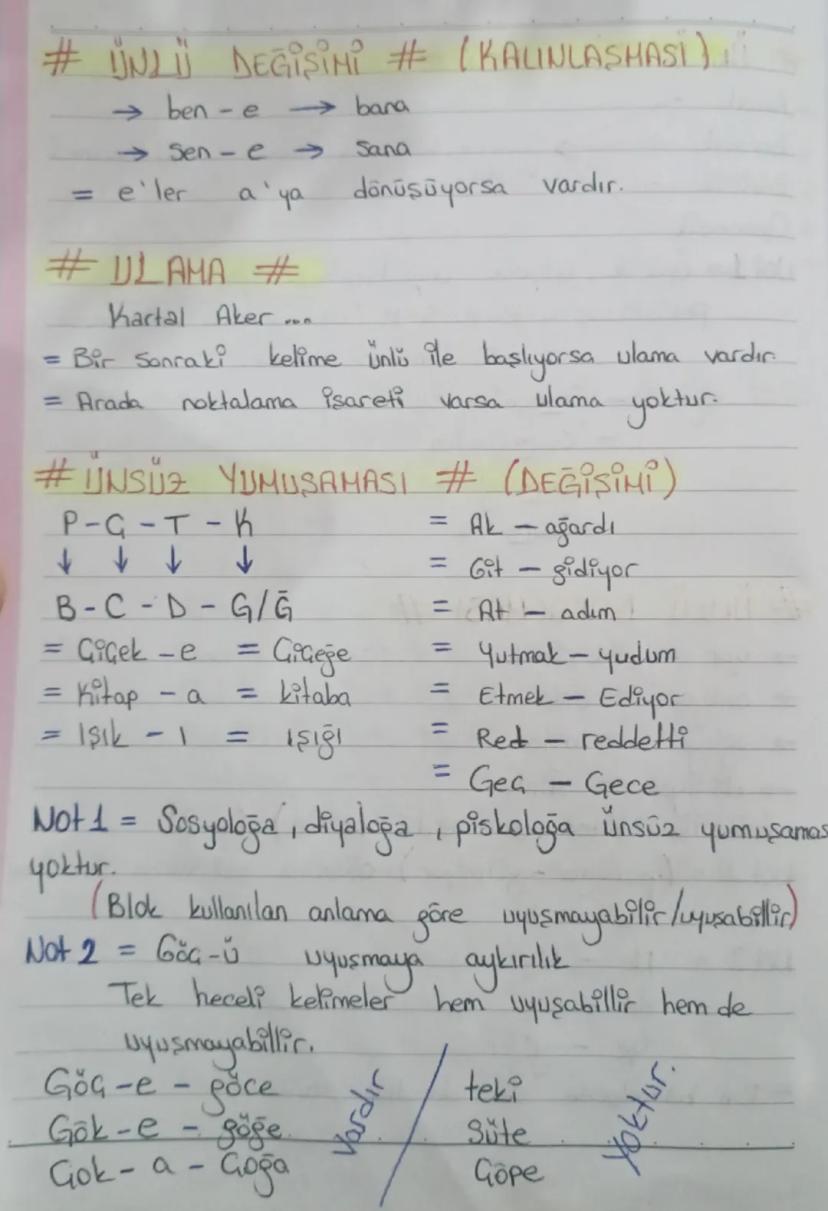 # ÜNLÜ DEĞİŞİMİ # (KALINLAŞMASI)
→ ben - e → bana
→ sen - e → sana
= e'ler a'ya dönüşüyorsa vardır.
# ULAMA #
Kartal Aker ...
= Bir sonraki kelime ünlü ile başlıyorsa ulama vardır.
= Arada noktalama işareti varsa ulama yoktur.
# ÜNSÜZ YUMUŞAMASI # (DEĞİŞİMİ)
P - Ç - T - K = Ak - ağardı
↓ ↓ ↓ ↓ = Git - gidiyor
B - C - D - G/Ğ = At - adım
= Çiçek - e = Çiçeğe = Yutmak - yudum
= Kitap - a = kitaba = Etmek - Ediyor
= Işık - ı = ışığı = Red - reddetti
= Geç - Gece
Not 1 = Sosyoloğa, diyaloğa, piskoloğa ünsüz yumuşamas
yoktur.
(Blok kullanılan anlama göre uyuşmayabilir/uyuşabillir)
Not 2 = Göç-ü uyuşmaya aykırılık
Tek heceli kelimeler hem uyuşabillir hem de
uyuşmayabillir.
Göç - e - göçe / teki
Gök - e - göğe vardır / süte yoktur.
Çok - a - Çoğa / Çöpe